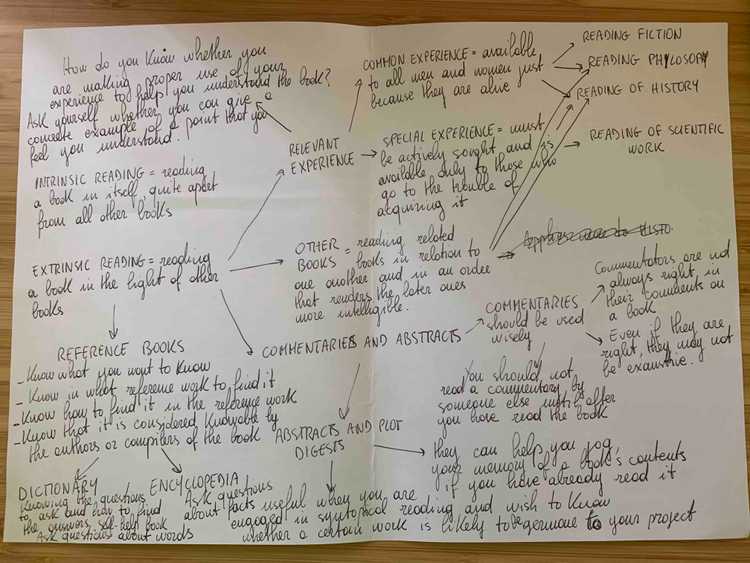 How do you know whether you
are making proper use of your
experience to help you understand the book?
Ask yourself whether you can give a
concrete example of a point that you
feel you understand.
INTRINSIC READING = reading
a book in itself, quite apart
from all other books
EXTRINSIC READING = reading
a book in the light of other
books
RELEVANT
EXPERIENCE
COMMON EXPERIENCE = available
to all men and women just
because they are alive
READING FICTION
READING PHYLOSOPY
READING OF HISTORY
SPECIAL EXPERIENCE = must
be actively sought and is
available only to those who
go to the trouble of
acquiring it
READING OF SCIENTIFIC
WORK
OTHER
BOOKS = reading related
books in relation to
one another and in an order
that renders the later ones
more intelligible.
COMMENTARIES AND ABSTRACTS
COMMENTARIES
should be used
wisely
Commentators are not
always right in
their comments on
a book
Even if they are
right, they may not
be exaustive.
You should not
read a commentary by
someone else until after
you have read the book
REFERENCE BOOKS
- Know what you want to know
- Know in what reference work to find it
- Know how to find it in the reference work
- Know that it is considered knowable by
the authors or compilers of the book
DICTIONARY
Knowing the questions
to ask and how to find
the answers, self-help book
Ask questions about words
ENCYCLOPEDIA
Ask questions
about facts
ABSTRACTS AND PLOT
DIGESTS
they can help you jog
your memory of a book's contents
if you have already read it
useful when you are
engaged in syntopical reading and wish to know
whether a certain work is likely to be germane to your project